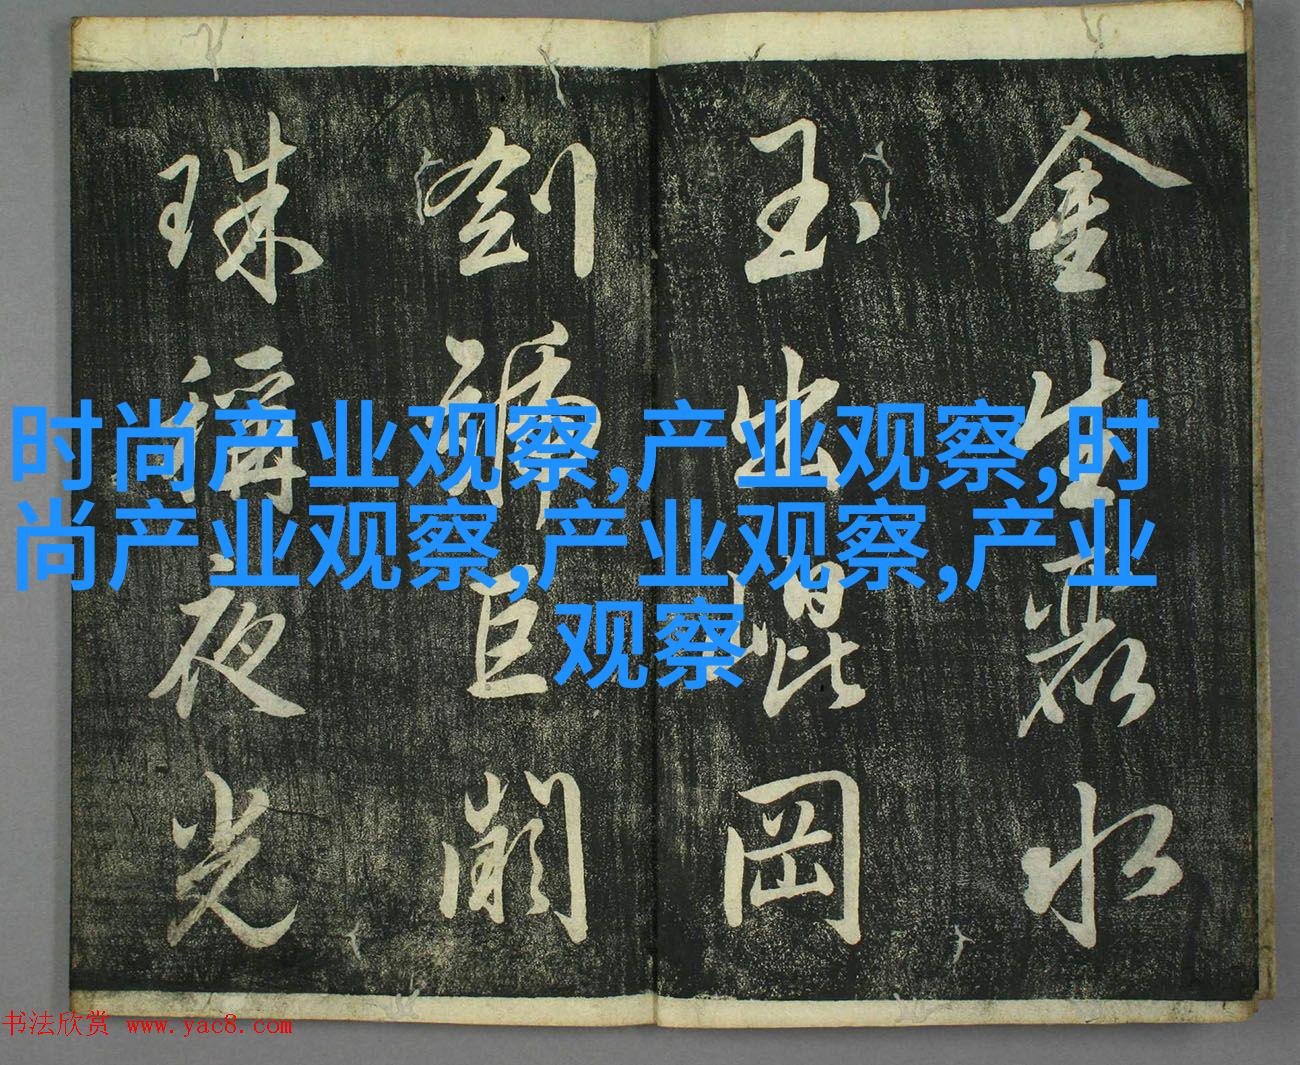 金生麗水
玉出崐岡
劍號巨闕
珠稱夜光
时尚产业观察,产业观察,时
尚产业观察,产业观察,产业
观察
书法欣赏 www.yac8.com